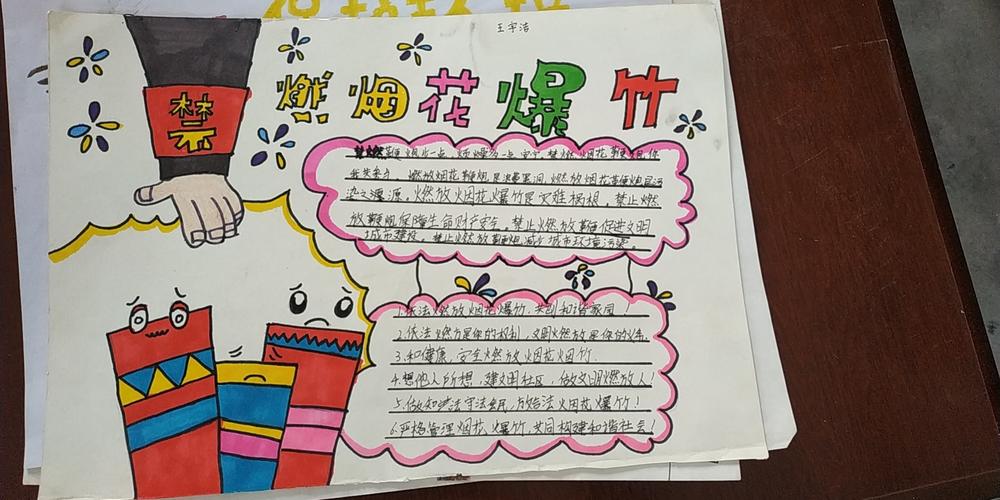 王宇洁
禁
燃烟花爆竹
禁燃鞭炮少一点 环境多一点 安宁 禁燃烟花鞭炮你
我共参与 燃放烟花鞭炮是浪费黑洞 燃放烟花鞭炮是污
染之源源。燃放烟花爆竹是灾难祸根，禁止燃
放鞭炮保障生命财产安全。禁止燃放鞭炮促进文明
城市建设。禁止燃放鞭炮减少城市环境污染。
1.依法燃放烟花爆竹，共创和谐家园！
2.依法燃放是你的权利，文明燃放是你的义务。
3.和健康，安全燃放烟花烟竹.
4.想他人所想，建文明社区，做文明燃放人！
5.做知法守法 ，燃放合法烟花爆竹！
6.严格管理烟花爆竹，共同构建和谐社会！